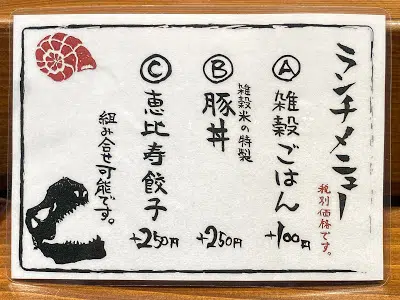 ランチメニュー
税別価格です。
Ⓐ雑穀ごはん +100円
雑穀米の特製
Ⓑ豚丼 +250円
Ⓒ恵比寿餃子 +250円
組み合せ可能です。